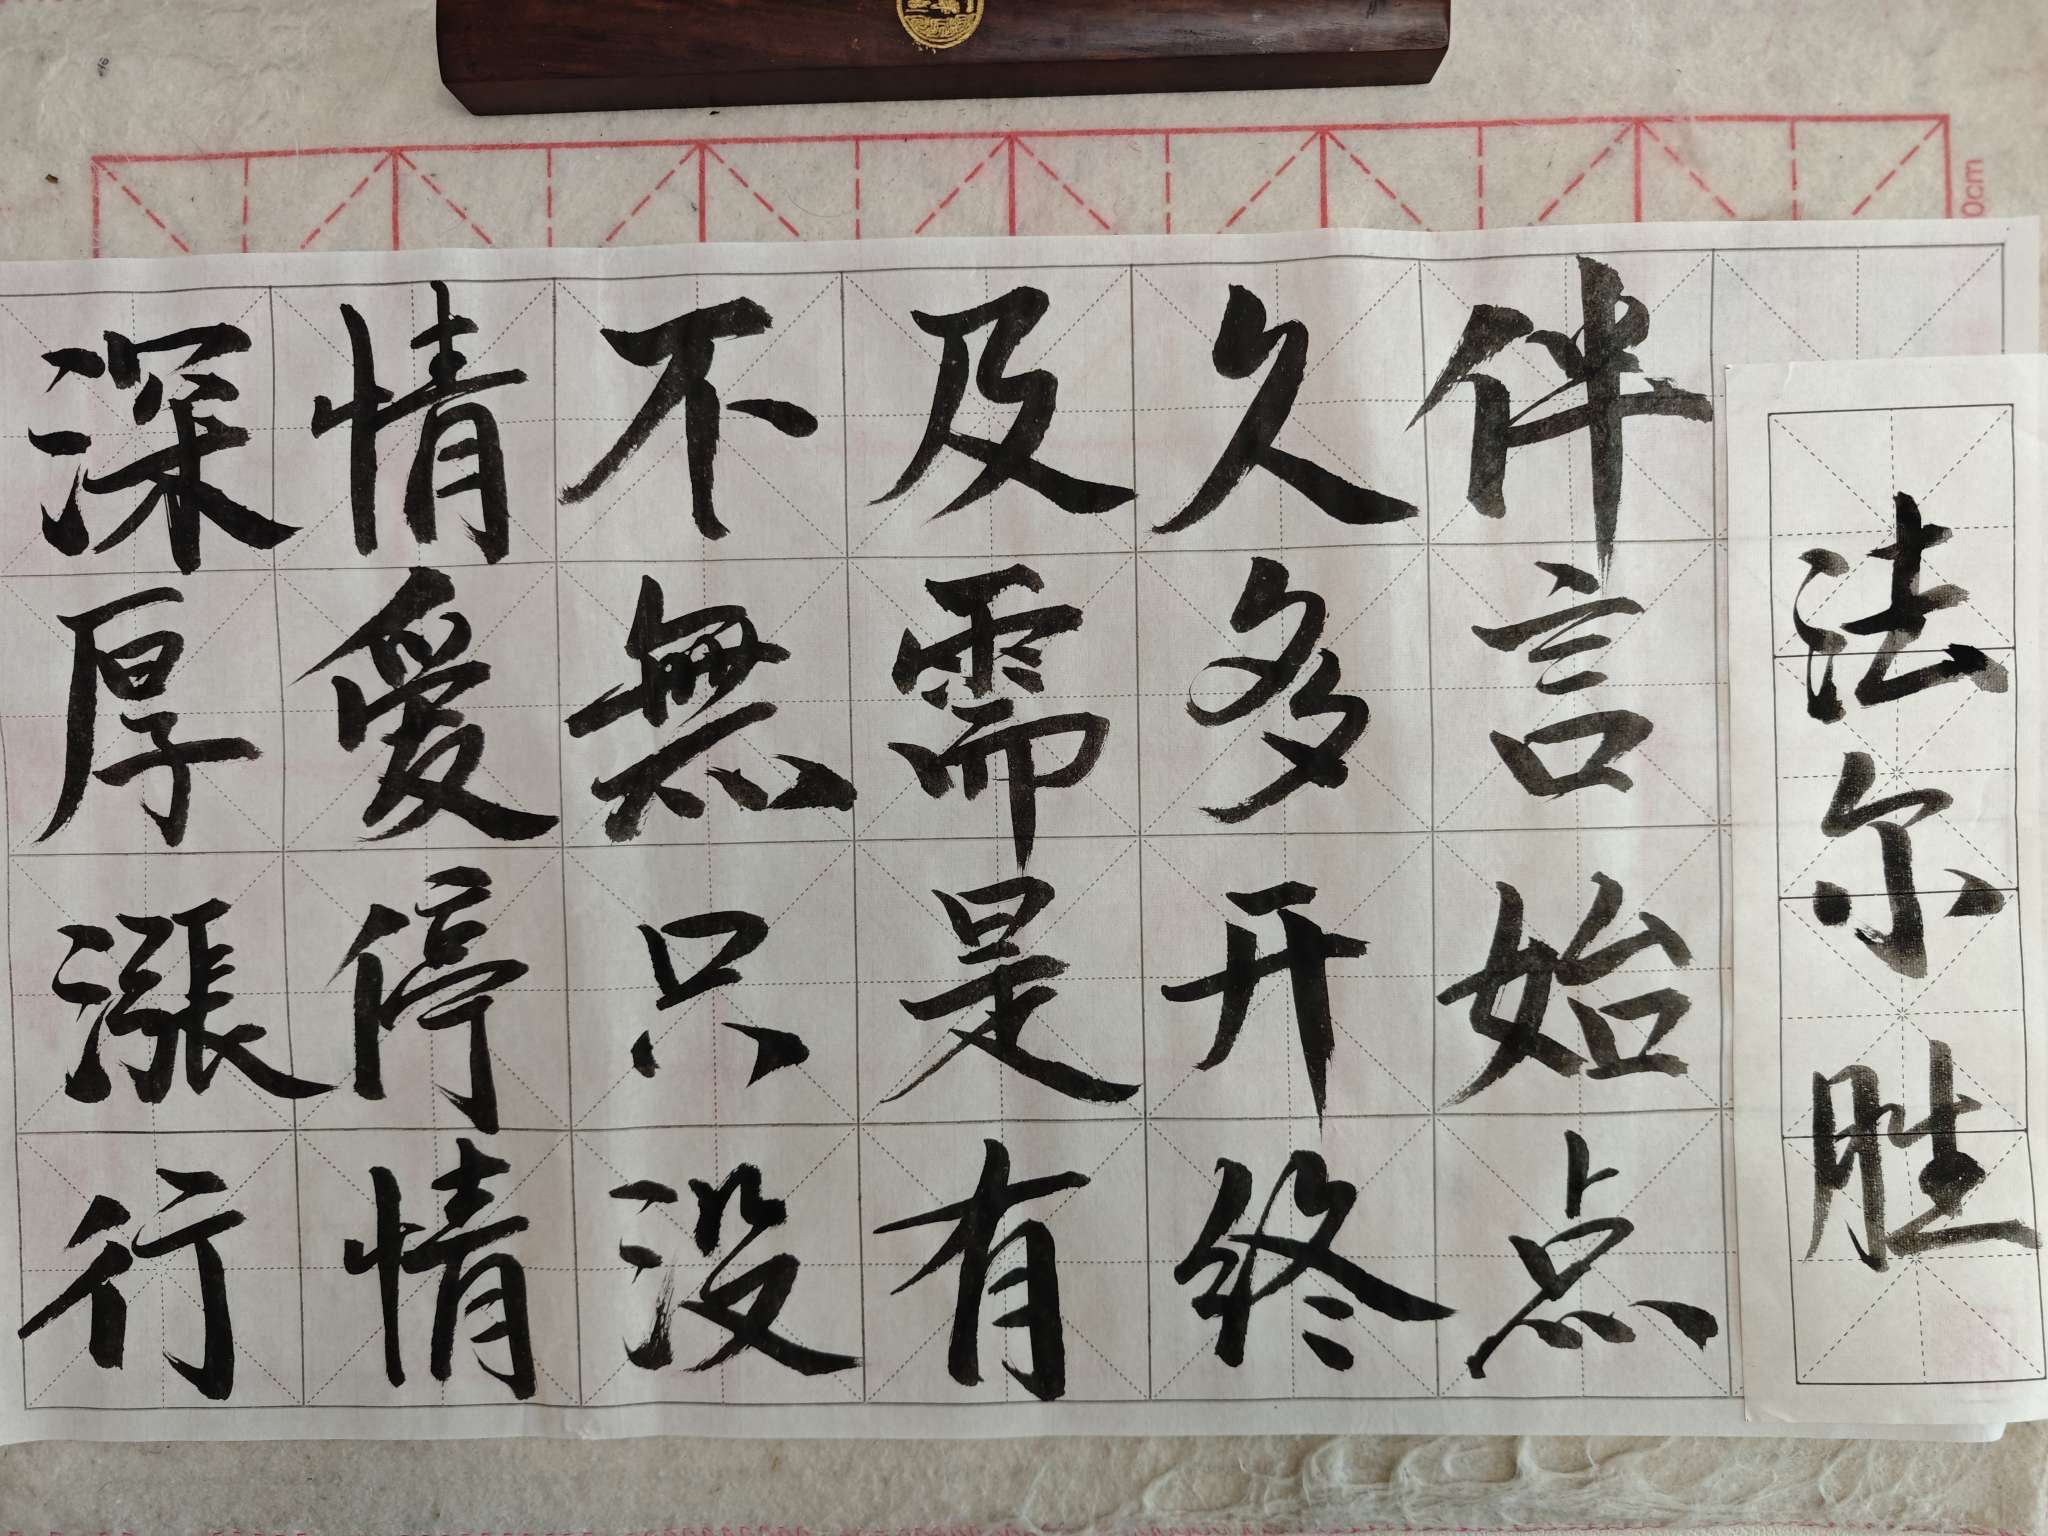 深情不及久伴
厚爱無需多言
漲停只是开始
行情没有终点
法尔胜
0cm